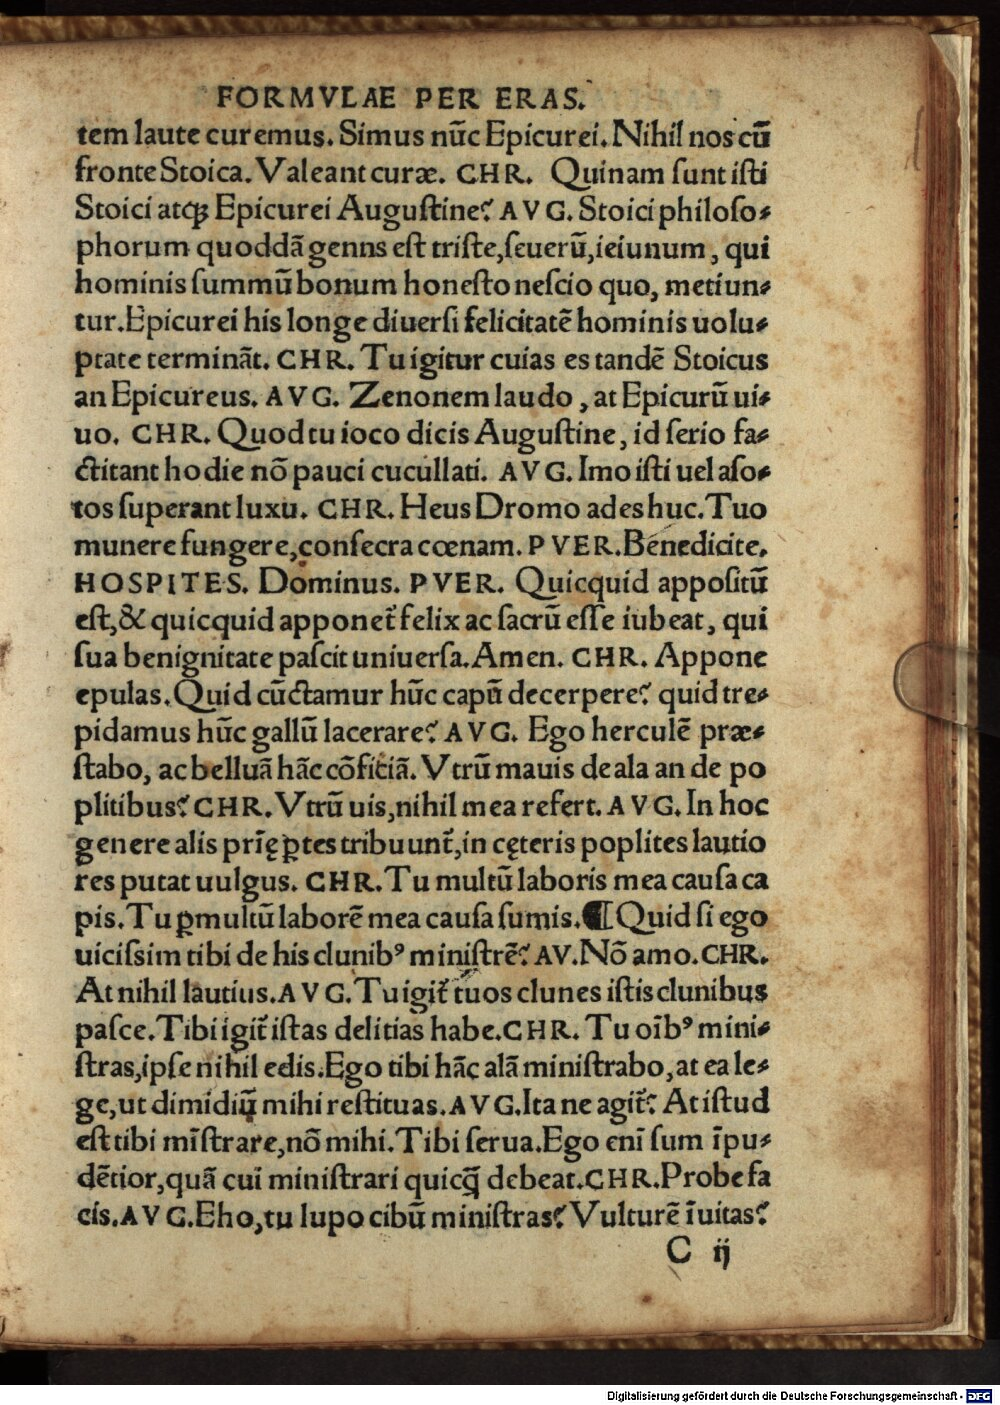 FORMVLAE PER ERAS.
tem laute curemus. Simus nūc Epicurei. Nihil nos cū
fronte Stoica. Valeant curæ. CHR. Quinam sunt isti
Stoici atq; Epicurei Augustine? AVG. Stoici philoso-
phorum quoddā genns est triste, seuerū, ieiunum, qui
hominis summū bonum honesto nescio quo, metiun-
tur. Epicurei his longe diuersi felicitatē hominis uolu-
ptate termināt. CHR. Tu igitur cuias es tandē Stoicus
an Epicureus. AVG. Zenonem laudo, at Epicurū ui-
uo. CHR. Quod tu ioco dicis Augustine, id serio fa-
ctitant hodie nō pauci cucullati. AVG. Imo isti uel aso-
tos superant luxu. CHR. Heus Dromo ades huc. Tuo
munere fungere, consecra cœnam. PVER. Benedicite.
HOSPITES. Dominus. PVER. Quicquid appositū
est, & quicquid apponet᷑ felix ac sacrū esse iubeat, qui
sua benignitate pascit uniuersa. Amen. CHR. Appone
epulas. Quid cūctamur hūc capū decerpere? quid tre-
pidamus hūc gallū lacerare? AVG. Ego herculē præ-
stabo, ac belluā hāc cōficiā. Vtrū mauis de ala an de po
plitibus? CHR. Vtrū uis, nihil mea refert. AVG. In hoc
genere alis prīę ꝑtes tribuunt᷑, in cęteris poplites lautio
res putat uulgus. CHR. Tu multū laboris mea causa ca
pis. Tu ꝑmultū laborē mea causa sumis. ¶ Quid si ego
uicissim tibi de his clunibꝰ ministrē? AV. Nō amo. CHR.
At nihil lautius. AVG. Tu igit᷑ tuos clunes istis clunibus
pasce. Tibi igit᷑ istas delitias habe. CHR. Tu oībꝰ mini-
stras, ipse nihil edis. Ego tibi hāc alā ministrabo, at ea le-
ge, ut dimidiū mihi restituas. AVG. Ita ne agit᷑? At istud
est tibi mīstrare, nō mihi. Tibi serua. Ego enī sum īpu-
dētior, quā cui ministrari quicq̄ debeat. CHR. Probe fa
cis. AVG. Eho, tu lupo cibū ministras? Vulturē īuitas?
C ij
Digitalisierung gefördert durch die Deutsche Forschungsgemeinschaft - DFG